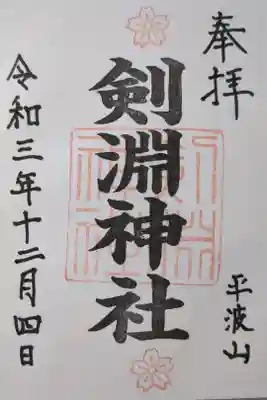 奉拝
剣淵神社
平波山
令和三年十二月四日